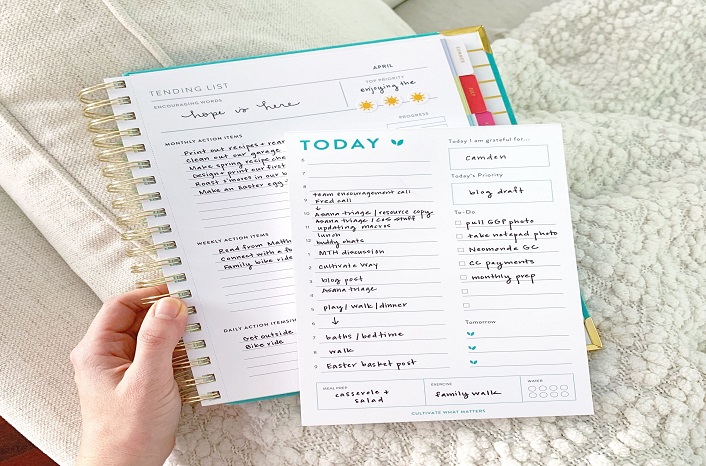 TENDING LIST
APRIL
ENCOURAGING WORDS
hope is here
TOP PRIORITY
enjoying the
PROGRESS
MONTHLY ACTION ITEMS
Print out recipes + rear
Clean out our garage
Make spring recipe che
Design + print our first
Roast s'mores in our b
Make an Easter egg
WEEKLY ACTION ITEMS
Read from Matth
Connect with a fo
Family bike rid
DAILY ACTION ITEMS
Get outside
Bike ride
JULY
TODAY
6
7
8
9 team encouragement call
Fred call
10 Asana triage / resource copy
Asana triage / C+G stuff
11 updating macros
lunch
12 buddy chats
1 MTH discussion
2 cultivate way
3 blog post
4 Asana triage
5 play / walk / dinner
6
7 baths / bedtime
8 walk
9 Easter basket post
Today I am grateful for...
Camden
Today's Priority
blog draft
To-Do
pull GGP photo
take notepad photo
Neomonde GC
CC payments
monthly prep
Tomorrow
MEAL PREP
casserole +
salad
EXERCISE
family walk
WATER
CULTIVATE WHAT MATTERS